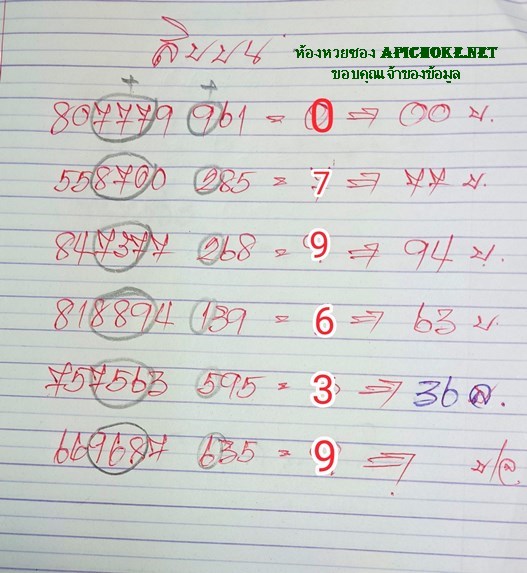 สิบบน
ห้องหวยซอง APICHOKE.NET
ขอบคุณเจ้าของข้อมูล
+ +
807779 961 = 0 ⇒ 00 บ.
558700 285 = 7 ⇒ 77 บ.
847377 268 = 9 ⇒ 94 บ.
818894 139 = 6 ⇒ 63 บ.
757563 595 = 3 ⇒ 36 ล.
669687 635 = 9 ⇒ บ/ล